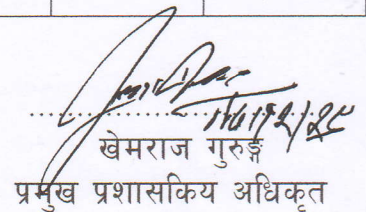 खेमराज गुरुङ्ग
प्रमुख प्रशासकिय अधिकृत